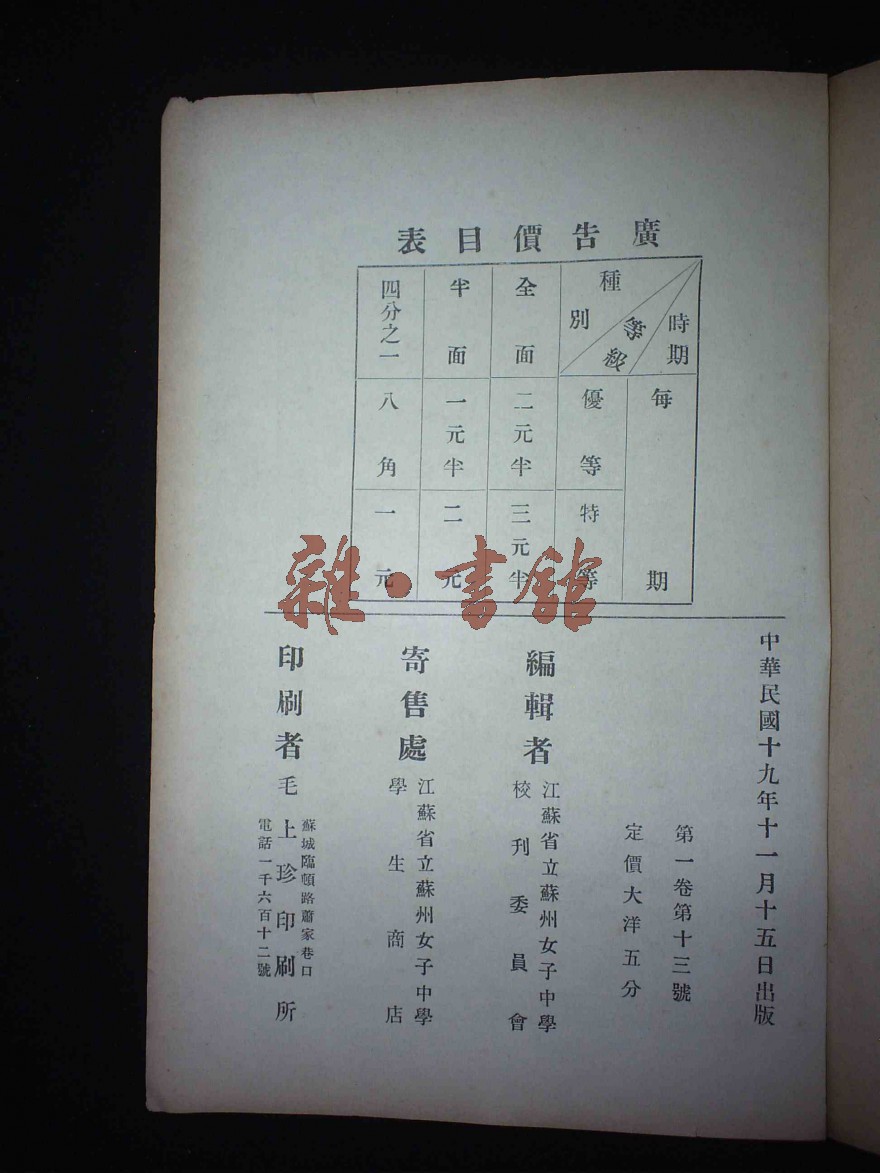 廣告價目表
時期
等級
種別
每期
優等
特等
全面
二元半
三元半
半面
一元半
二元
四分之一
八角
一元
雜·書館
中華民國十九年十一月十五日出版
第一卷第十三號
定價大洋五分
編輯者
江蘇省立蘇州女子中學
校刊委員會
寄售處
江蘇省立蘇州女子中學
學生商店
印刷者
蘇城臨頓路蕭家巷口
毛上珍印刷所
電話一千六百十二號